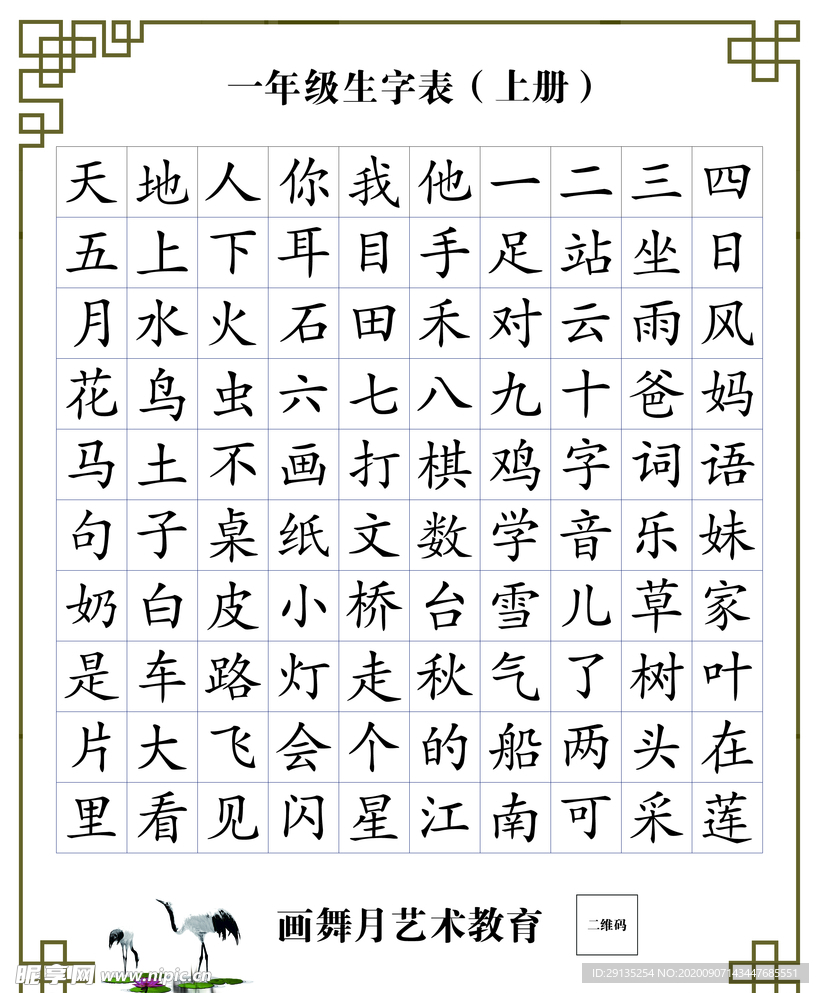 一年级生字表（上册）
天地人你我他一二三四
五上下耳目手足站坐日
月水火石田禾对云雨风
花鸟虫六七八九十爸妈
马土不画打棋鸡字词语
句子桌纸文数学音乐妹
奶白皮小桥台雪儿草家
是车路灯走秋气了树叶
片大飞会个的船两头在
里看见闪星江南可采莲
画舞月艺术教育
二维码
昵享网 www.nipic.cn
ID:29135254 NO:20200907143447685551